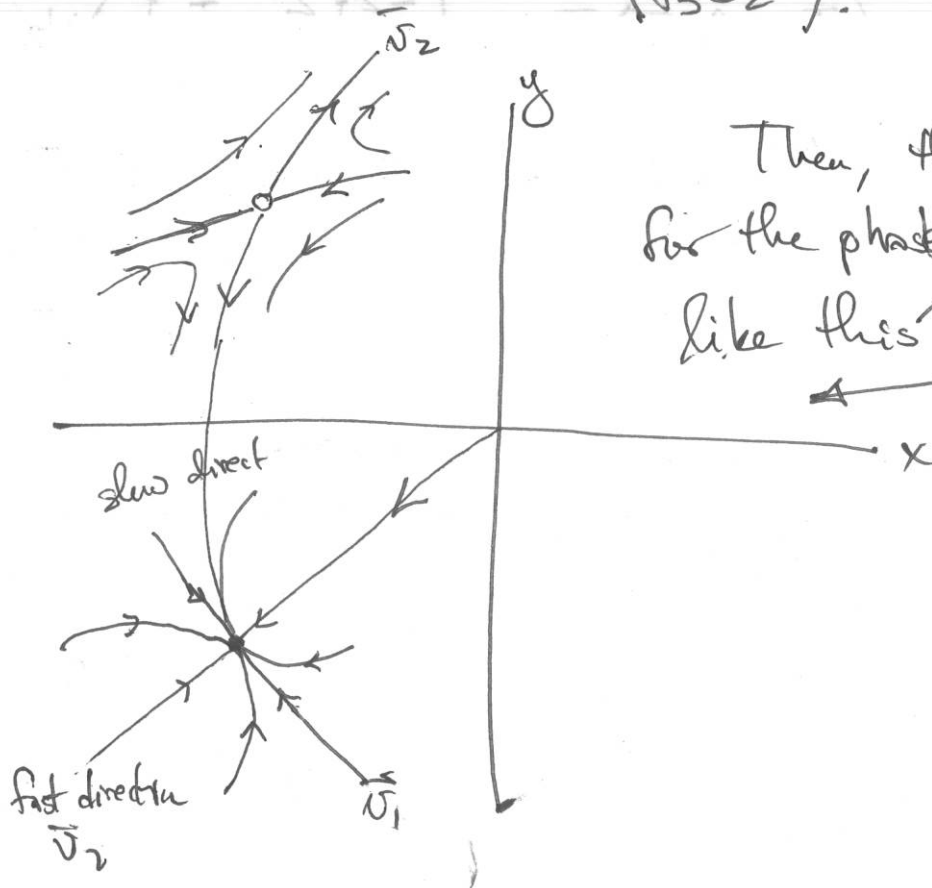 √5-2
v̄2
y
Then,
for the phas
like this
x
slow direct
fast direction
v̄2
v̄1